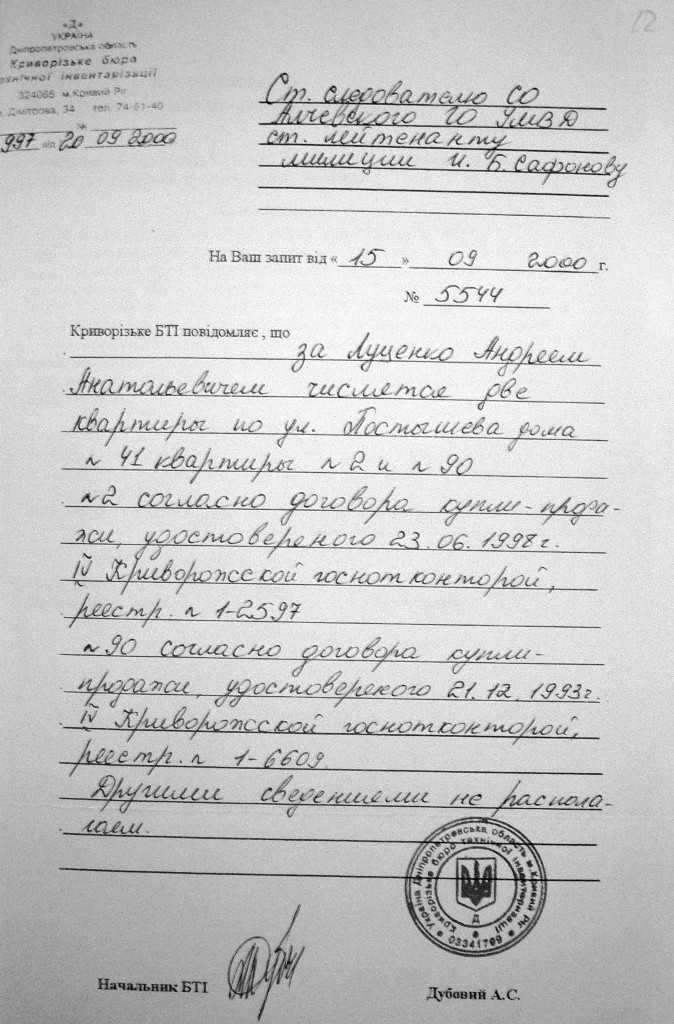 12
«Д»
УКРАЇНА
Дніпропетровська область
Криворізьке бюро
технічної інвентарізації
324065 м.Кривий Ріг
Дмітрова, 34 тел. 74-61-40
№
997 від 20 09 2000
Ст. следователю СО
Алчевского ГО УМВД
ст. лейтенанту
милиции И. Б. Сафонову
На Ваш запит від « 15 » 09 2000 г.
№ 5544
Криворізьке БТІ повідомляє , що
за Луценко Андреем
Анатольевичем числятся две
квартиры по ул. Постышева дома
№ 41 квартиры №2 и №90
№2 согласно договора купли-прода-
жи, удостовереного 23.06.1998г.
IV Криворожсской госнотконторой,
реестр. № 1-2597
№90 согласно договора купли-
продажи, удостовереного 21.12.1993г.
IV Криворожсской госнотконторой,
реестр. № 1-6609.
Другими сведениями не распола-
гаем.
Україна Дніпропетровська область м.Кривий Ріг
Криворізьке бюро технічної інвентаризації
Д
03341799
Начальник БТІ
Дубовий А.С.